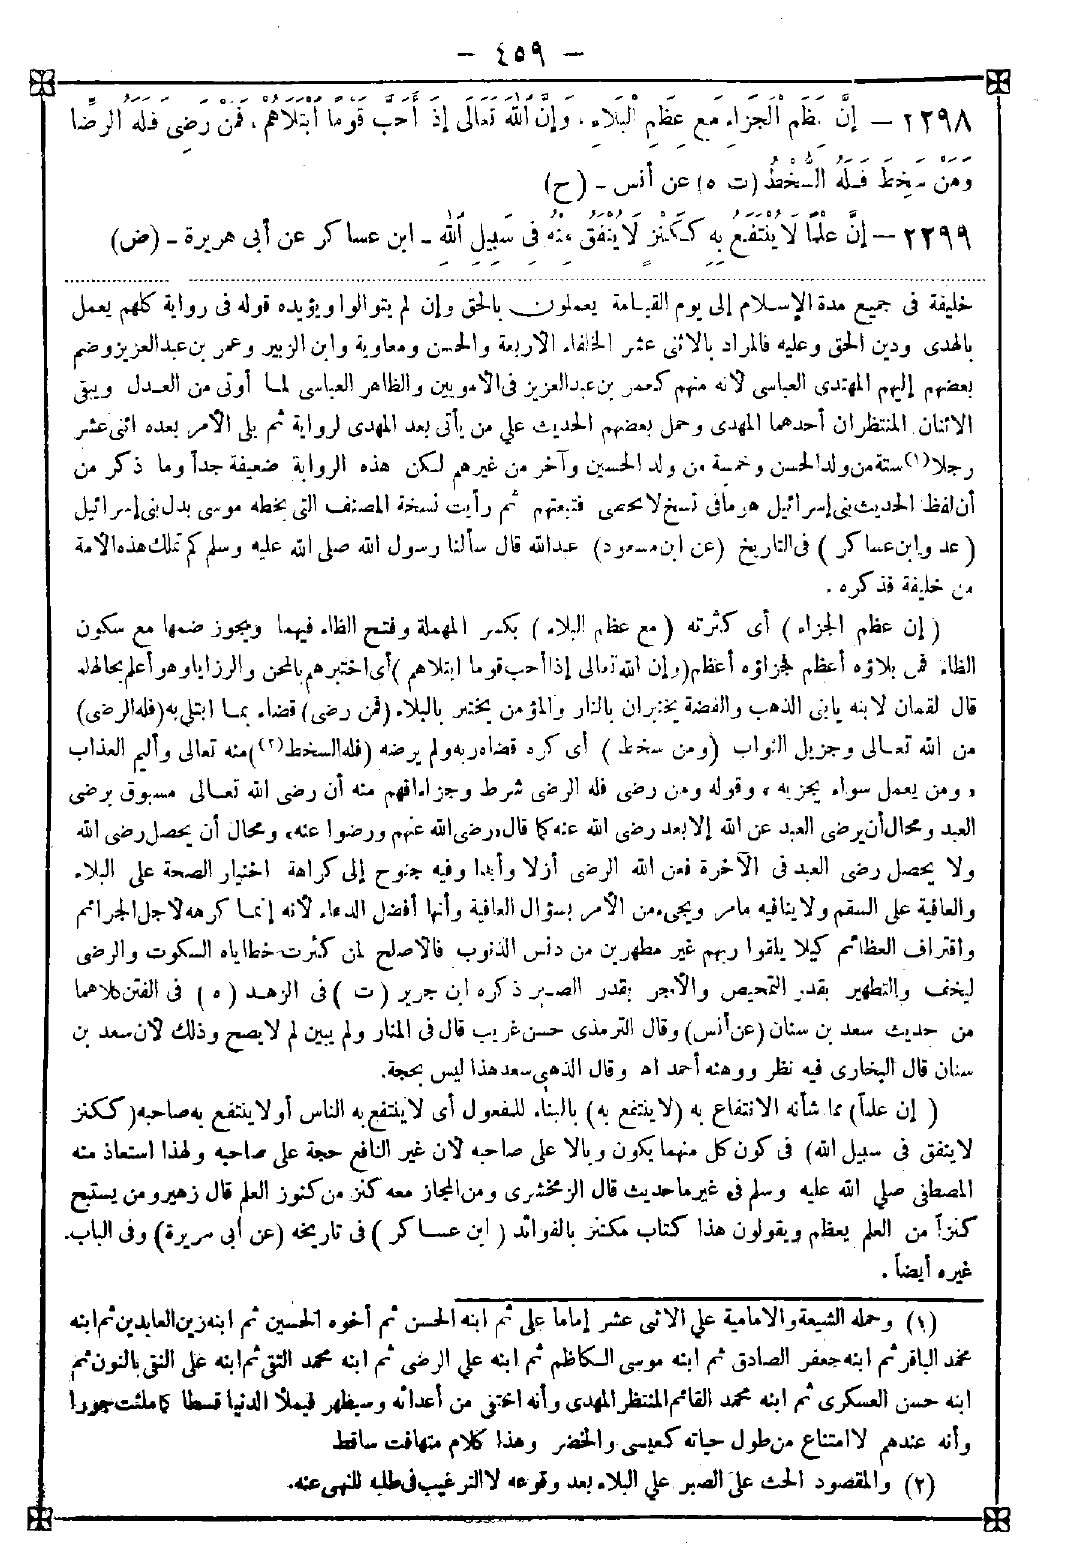 — ٤٥٩ —
٢٢٩٨ — إِنَّ عِظَمَ الْجَزَاءِ مَعَ عِظَمِ الْبَلَاءِ، وَإِنَّ اللهَ تَعَالَى إِذَا أَحَبَّ قَوْمًا ابْتَلَاهُمْ، فَمَنْ رَضِىَ فَلَهُ الرِّضَا
وَمَنْ سَخِطَ فَلَهُ السُّخْطُ (ت ه) عن أنس - (ح)
٢٢٩٩ — إِنَّ عِلْمًا لَا يُنْتَفَعُ بِهِ كَكَنْزٍ لَا يُنْفَقُ مِنْهُ فِى سَبِيلِ اللهِ - ابن عساكر عن أبى هريرة - (ض)
خليفة فى جميع مدة الإسلام إلى يوم القيامة يعملون بالحق وإن لم يتوالوا ويؤيده قوله فى رواية كلهم يعمل
بالهدى ودين الحق وعليه فالمراد بالاثنى عشر الخلفاء الأربعة والحسن ومعاوية وابن الزبير وعمر بن عبد العزيز وضم
بعضهم إليهم المهتدى العباسى لأنه منهم كعمر بن عبدالعزيز فى الأمويين والظاهر العباسى لما أوتى من العدل ويبقى
الاثنان المنتظران أحدهما المهدى وحمل بعضهم الحديث علي من يأتى بعد المهدى لرواية ثم يلى الأمر بعده اثنى عشر
رجلا (١) ستة من ولد الحسن وخمسة من ولد الحسين وآخر من غيرهم لكن هذه الرواية ضعيفة جداً وما ذكر من
أن لفظ الحديث بنى إسرائيل هو مافى نسخ لا تحصى فتبعتهم ثم رأيت نسخة المصنف التى بخطه موسى بدل بنى إسرائيل
(عد وابن عساكر) فى التاريخ (عن ابن مسعود) عبدالله قال سألنا رسول الله صلى الله عليه وسلم كم تملك هذه الأمة
من خليفة فذكره .
(إن عظم الجزاء) أى كثرته (مع عظم البلاء) بكسر المهملة وفتح الظاء فيهما ويجوز ضمها مع سكون
الظاء فمن بلاؤه أعظم فجزاؤه أعظم (وإن الله تعالى إذا أحب قوما ابتلاهم) أى اختبرهم بالمحن والرزايا وهو أعلم بحالهم
قال لقمان لابنه يابنى الذهب والفضة يختبران بالنار والمؤمن يختبر بالبلاء (فمن رضى) قضاء بما ابتلي به (فله الرضى)
من الله تعالى وجزيل الثواب (ومن سخط) أى كره قضاء ربه ولم يرضه (فله السخط (٢)) منه تعالى وأليم العذاب
«ومن يعمل سوءا يجز به» وقوله ومن رضى فله الرضى شرط وجزاء فافهم منه أن رضى الله تعالى مسبوق برضى
العبد ومحال أن يرضى العبد عن الله إلا بعد رضى الله عنه كما قال «رضى الله عنهم ورضوا عنه» ومحال أن يحصل رضى الله
ولا يحصل رضى العبد فى الآخرة فعن الله الرضى أزلا وأبدا وفيه جنوح إلى كراهة اختيار الصحة على البلاء
والعافية على السقم ولا ينافيه مامر ويجىء من الأمر بسؤال العافية وأنها أفضل الدعاء لأنه إنما كرهه لأجل الجرائم
واقتراف العظائم كيلا يلقوا ربهم غير مطهرين من دنس الذنوب فالأصلح لمن كثرت خطاياه السكوت والرضى
ليخف والتطهير بقدر التمحيص والأجر بقدر الصبر ذكره ابن جرير (ت) فى الزهد (ه) فى الفتن كلاهما
من حديث سعد بن سنان (عن أنس) وقال الترمذى حسن غريب قال فى المنار ولم يبين لم لا يصح وذلك لأن سعد بن
سنان قال البخارى فيه نظر ووهنه أحمد اه وقال الذهبى سعد هذا ليس بحجة.
(إن علماً) مما شأنه الانتفاع به (لا ينتفع به) بالبناء للمفعول أى لا ينتفع به الناس أو لا ينتفع به صاحبه (ككنز
لا ينفق فى سبيل الله) فى كون كل منهما يكون وبالا على صاحبه لأن غير النافع حجة على صاحبه ولهذا استعاذ منه
المصطفى صلي الله عليه وسلم فى غير ما حديث قال الزمخشرى ومن المجاز معه كنز من كنوز العلم قال زهير ومن يستبح
كنزاً من العلم يعظم ويقولون هذا كتاب مكتنز بالفوائد (ابن عساكر) فى تاريخه (عن أبى هريرة) وفى الباب
غيره أيضاً .
(١) وحمله الشيعة والإمامية علي الاثنى عشر إماما على ثم ابنه الحسن ثم أخوه الحسين ثم ابنه زين العابدين ثم ابنه
محمد الباقر ثم ابنه جعفر الصادق ثم ابنه موسى الكاظم ثم ابنه علي الرضى ثم ابنه محمد التقى ثم ابنه على النقى بالنون ثم
ابنه حسن العسكرى ثم ابنه محمد القائم المنتظر المهدى وأنه اختفى من أعدائه وسيظهر فيملأ الدنيا قسطا كما ملئت جورا
وأنه عندهم لا امتناع من طول حياته كعيسى والخضر وهذا كلام متهافت ساقط
(٢) والمقصود الحث على الصبر علي البلاء بعد وقوعه لا الترغيب فى طلبه للنهى عنه.